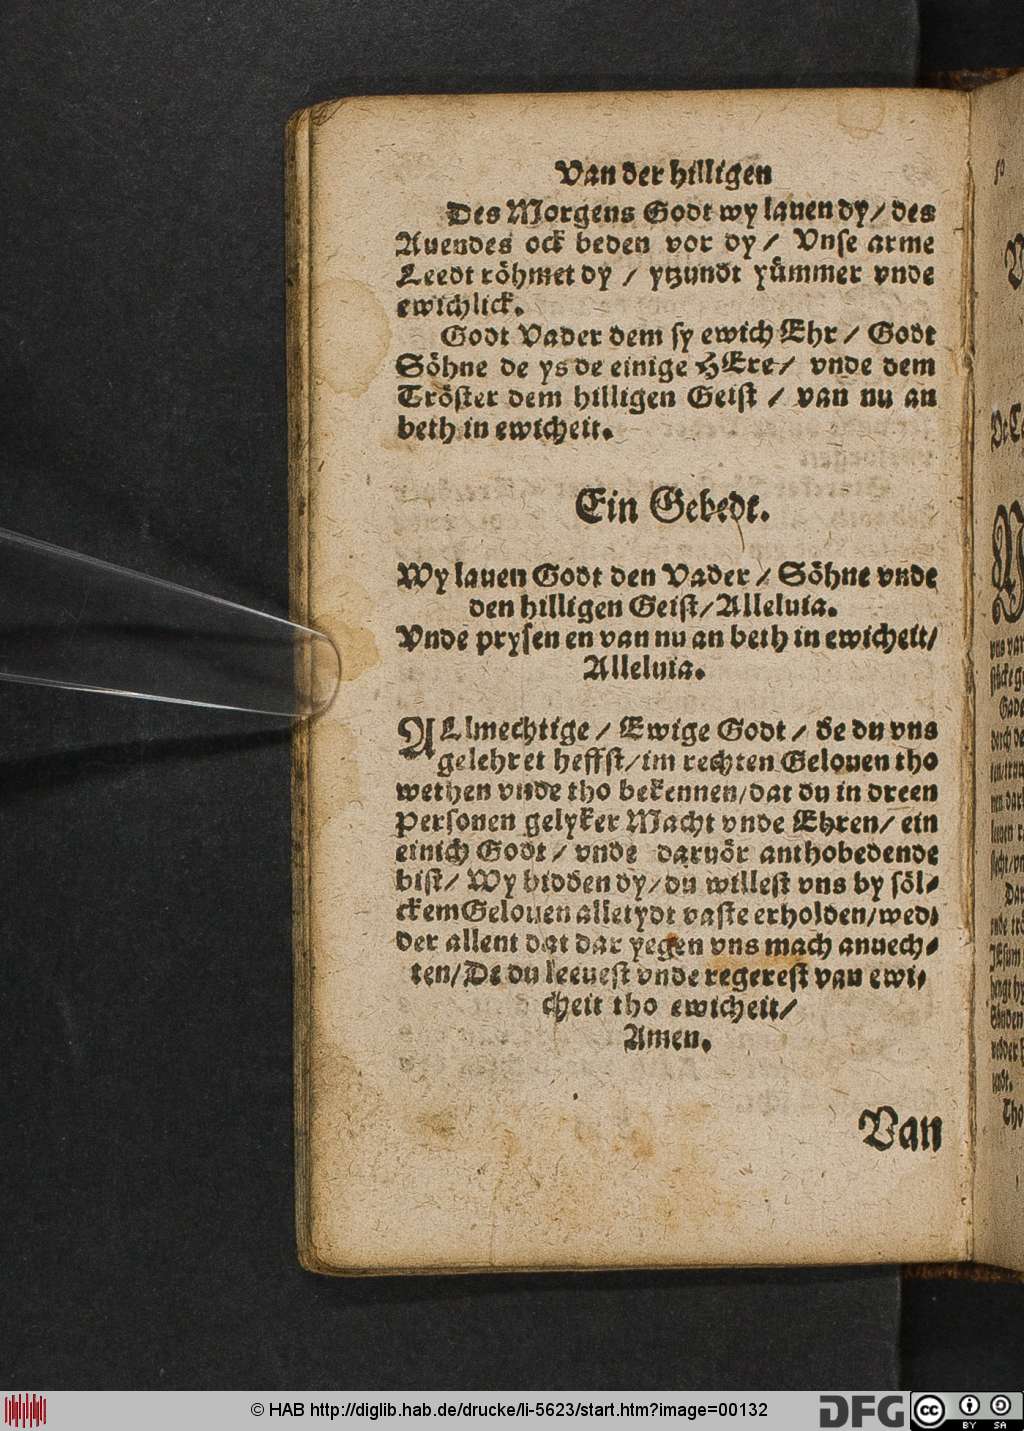 Van der hilligen
Des Morgens Godt wy lauen dy / des
Auendes ock beden vor dy / Vnse arme
Leedt röhmet dy / ytzundt yümmer vnde
ewichlick.
Godt Vader dem sy ewich Ehr / Godt
Söhne de ys de einige HEre / vnde dem
Tröster dem hilligen Geist / van nu an
beth in ewicheit.
Ein Gebedt.
Wy lauen Godt den Vader / Söhne vnde
den hilligen Geist / Alleluia.
Vnde prysen en van nu an beth in ewicheit /
Alleluia.
ALlmechtige / Ewige Godt / de du vns
gelehret heffst / im rechten Gelouen tho
wethen vnde tho bekennen / dat du in dreen
Personen gelyker Macht vnde Ehren / ein
einich Godt / vnde daruör anthobedende
bist / Wy bidden dy / du willest vns by söl-
ckem Gelouen alletydt vaste erholden / wed-
der allent dat dar yegen vns mach anuech-
ten / De du leeuest vnde regerest van ewi-
cheit tho ewicheit /
Amen.
Van
© HAB http://diglib.hab.de/drucke/li-5623/start.htm?image=00132
DFG
cc BY SA